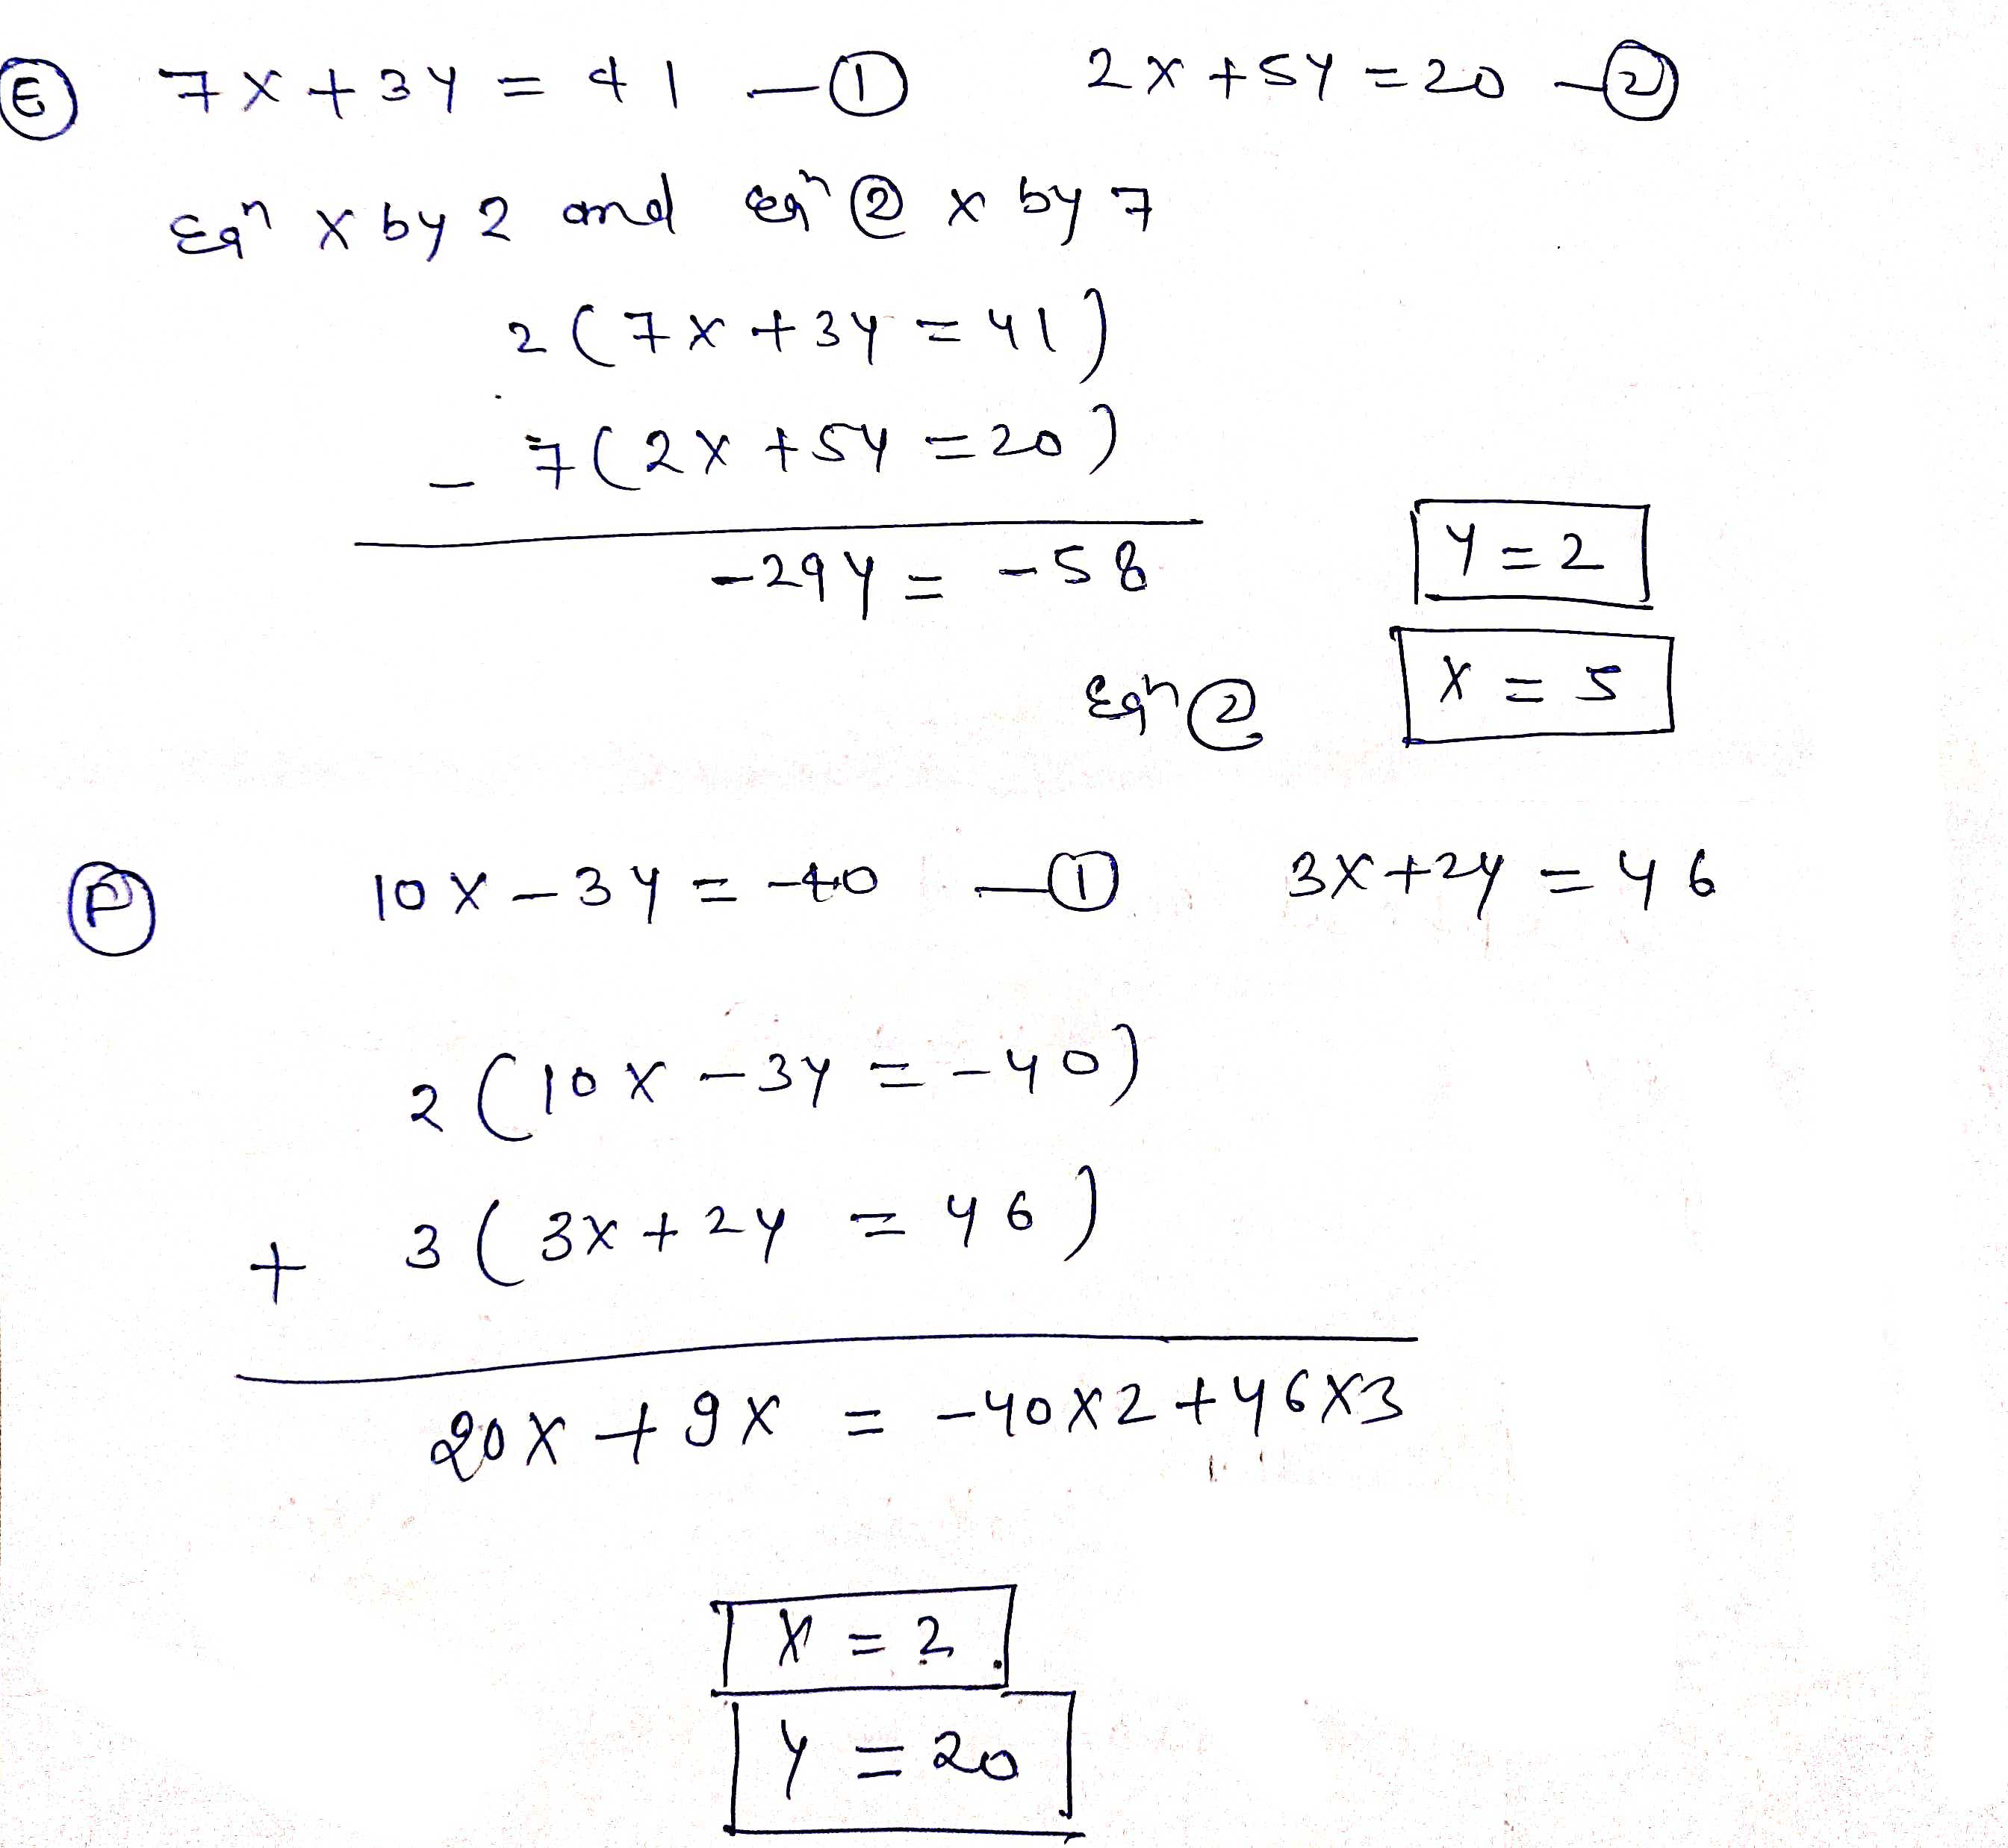 Ⓔ 7x + 3y = 41 — ① 2x + 5y = 20 — ②
Eqⁿ x by 2 and eqⁿ ② x by 7
2 ( 7x + 3y = 41 )
- 7 ( 2x + 5y = 20 )
-29y = -58 y = 2
Eqⁿ ② x = 5
Ⓟ 10x - 3y = -40 — ① 3x + 2y = 46
2 ( 10x - 3y = -40 )
+ 3 ( 3x + 2y = 46 )
20x + 9x = -40x2 + 46x3
x = 2
y = 20